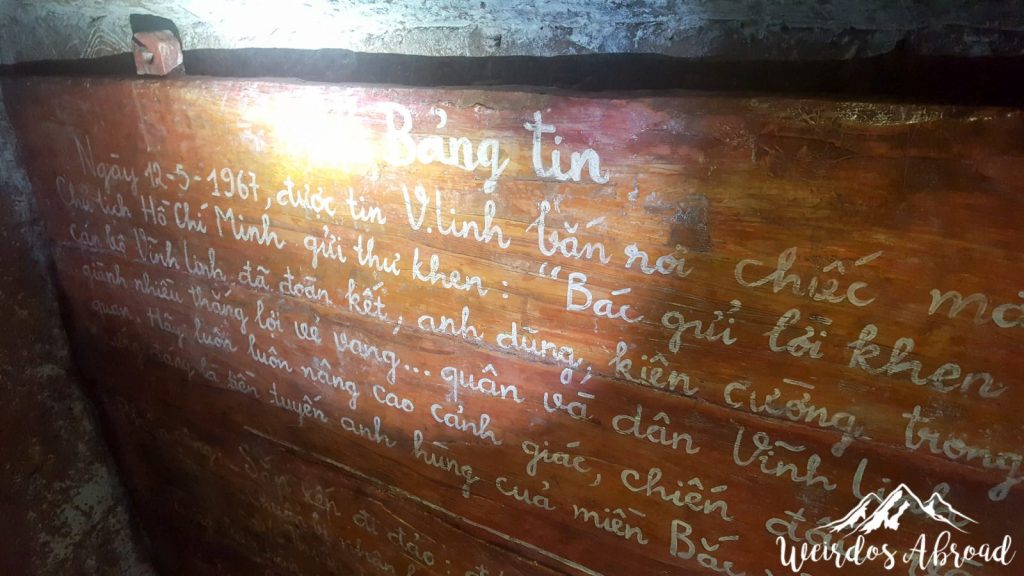 Bảng tin
Ngày 12-5-1967, được tin V.linh bắn rơi chiếc má
Chủ tịch Hồ Chí Minh gửi thư khen: "Bác gửi lời khen
cán bộ Vĩnh Linh đã đoàn kết, anh dũng, kiên cường trong
giành nhiều thắng lợi vẻ vang... quân và dân Vĩnh Linh
quan. Hãy luôn luôn nâng cao cảnh giác, chiến đấ
là tiền tuyến anh hùng của miền Bắc
đi đào:
Weirdos Abroad